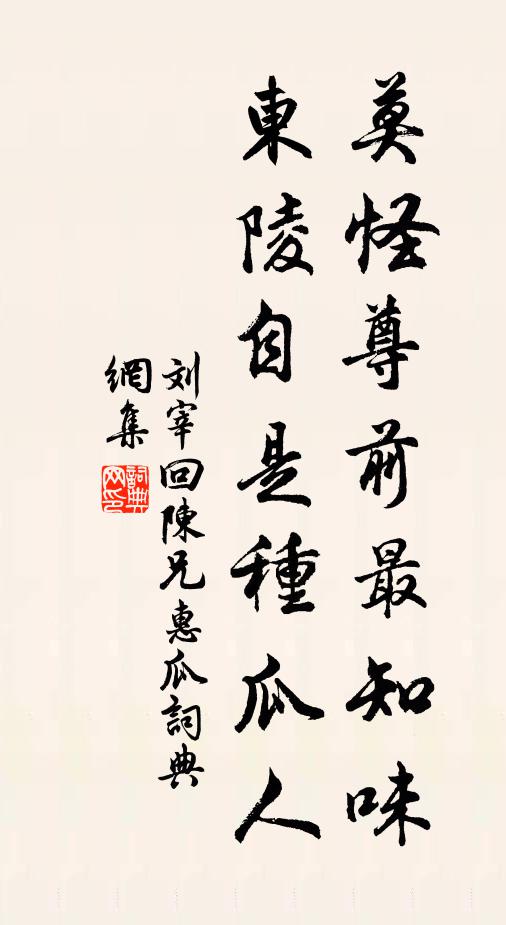 莫怪尊前最知味
東陵自是種瓜人
刘宰回陳兄惠瓜詞典
網集
詞典網印